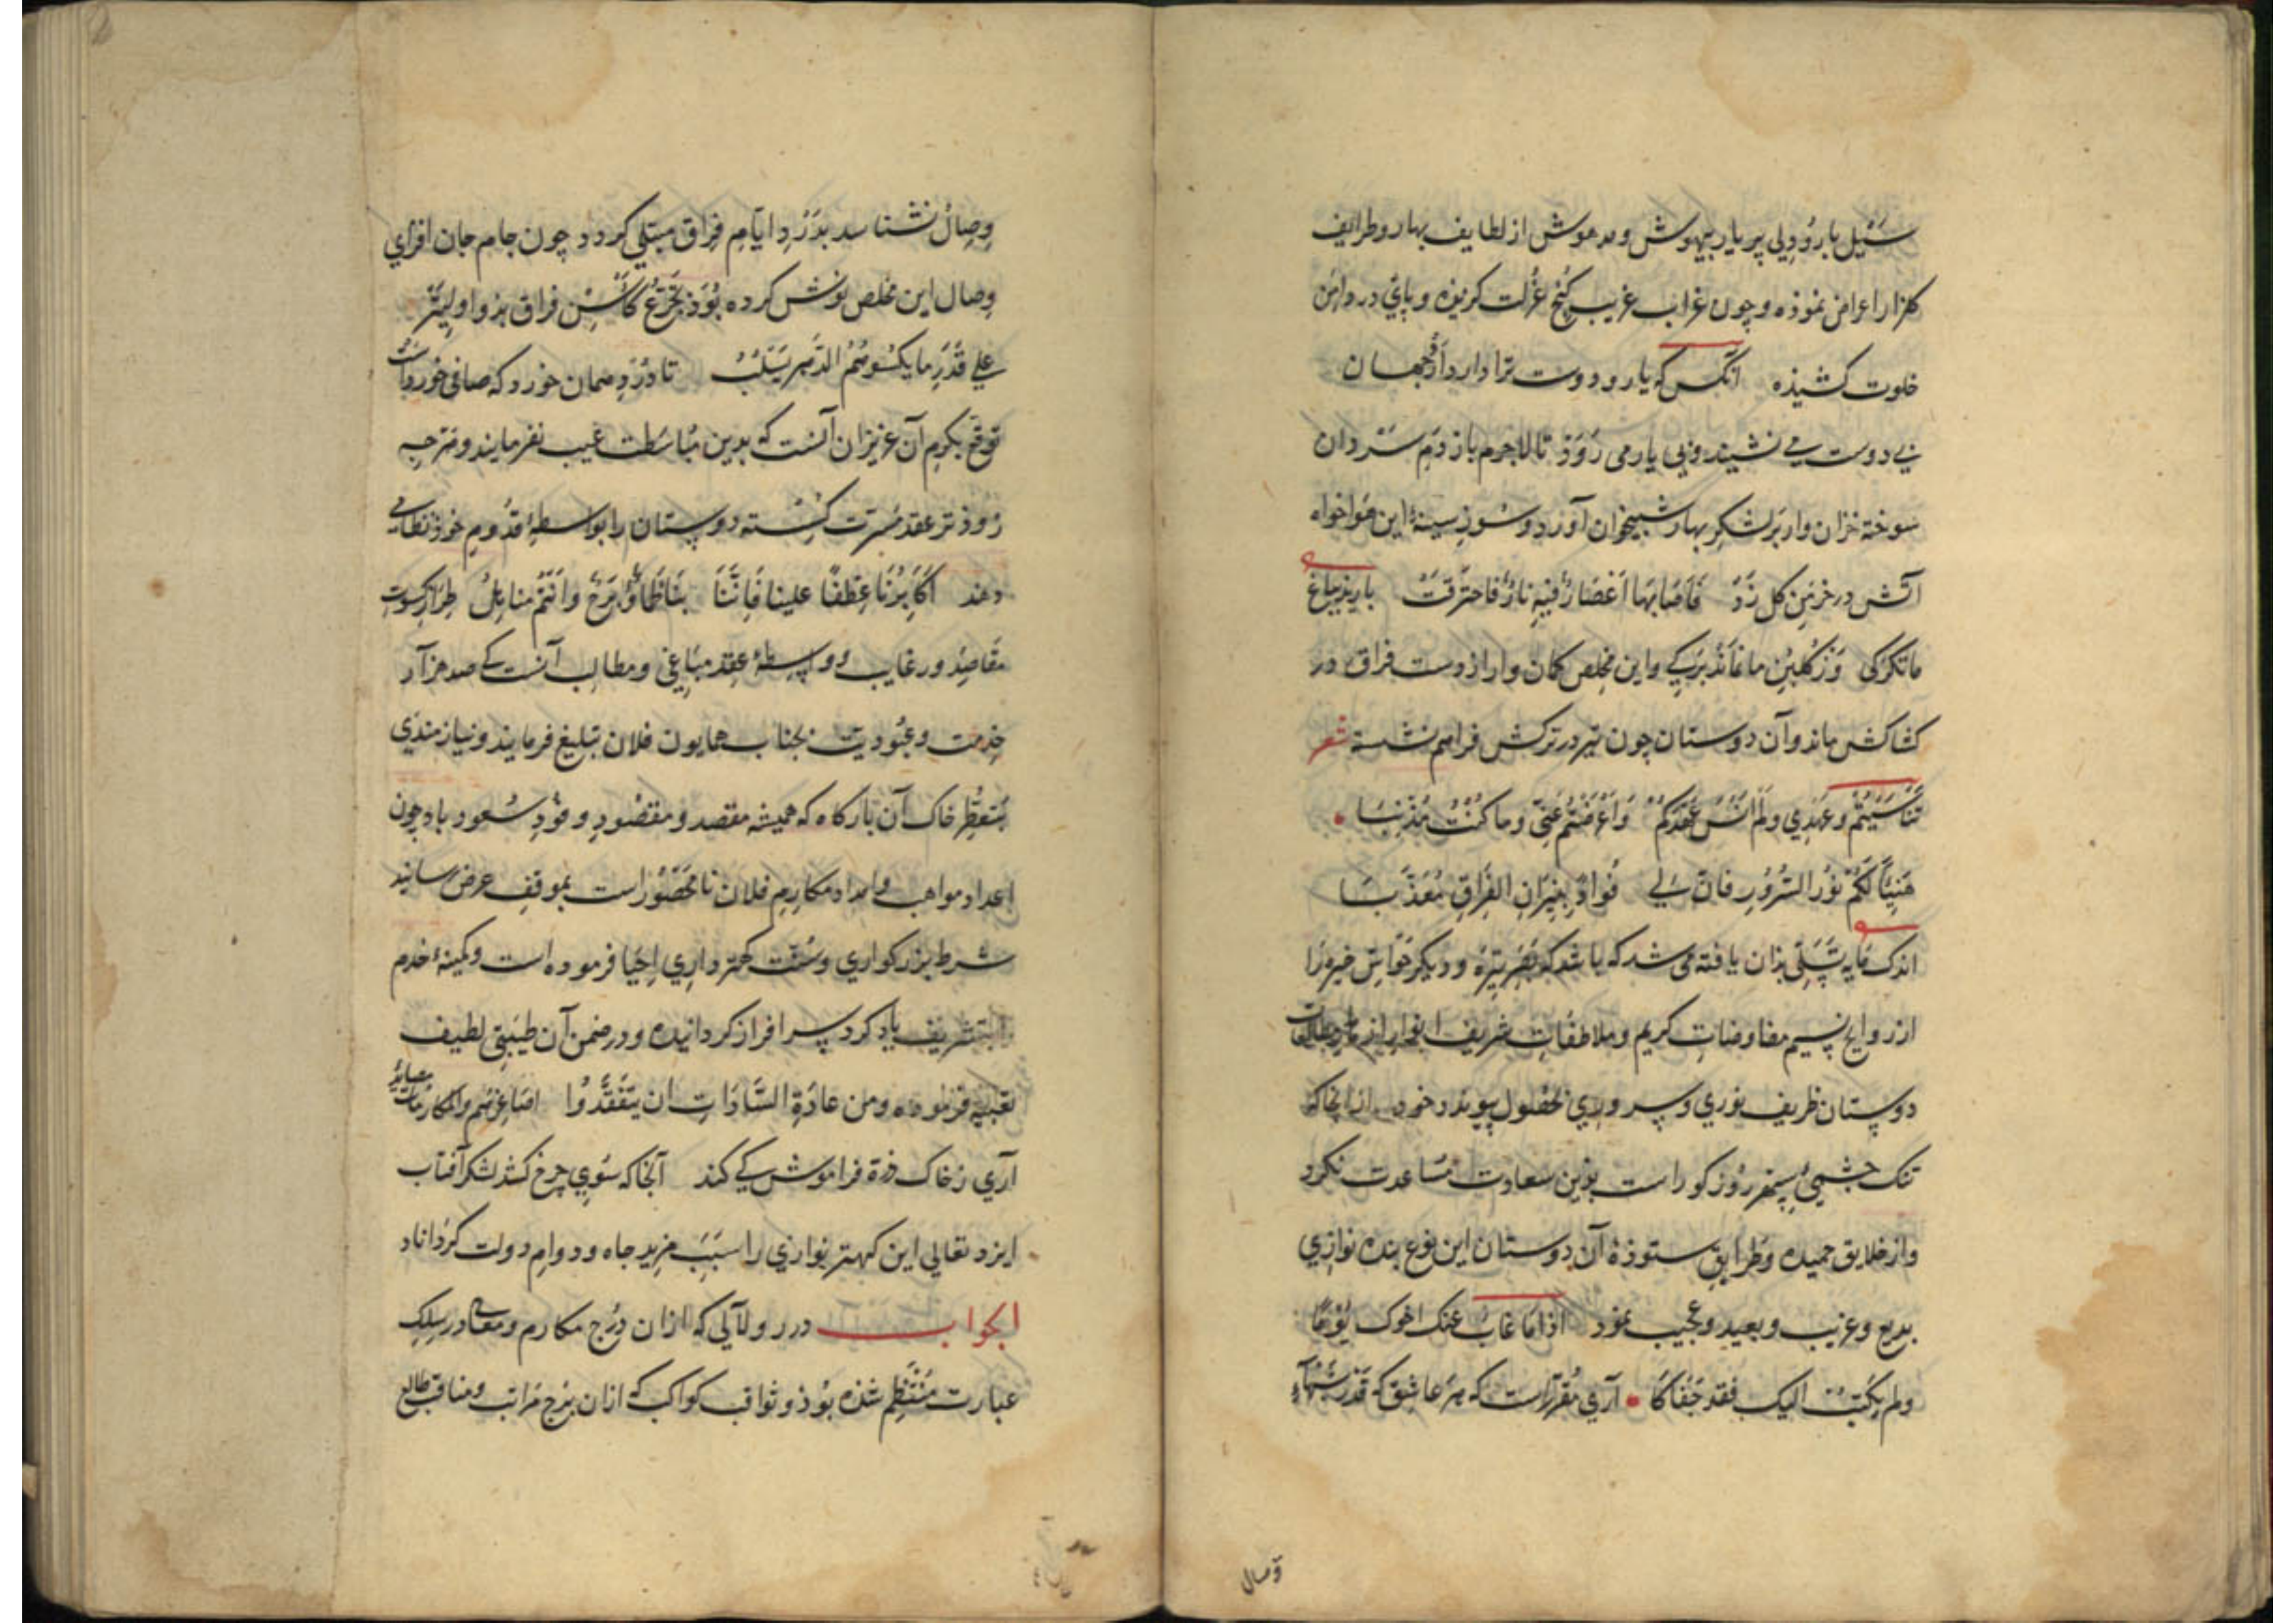 سبیل بارو دلی پر یار بیهوش و مدهوش از لطایف بهار و طرایف
کلزار اعراض نموذه و چون غراب غریب کنج عزلت کزیذه و پای در دامن
خلوت کشیذه آنکس که یار و دوست ترا دارد از جهان
بی دوست می نشیند و بی یار می روذ تا لاجرم باز دم سرد آن
سوخته خزان وار بر لشکر بهار شبیخون آورد و سوز سینۀ این هواخواه
آتش در خرمن کل زذ فاصابها اعصار فیه نار فاحترقت بارید بباغ
ما تکرکی وز کلبن ما نماند برکی و این مخلص کمان وار از دست فراق در
کشاکش ماند و آن دوستان چون تیر در ترکش فراهم نشسته شعر
تناسیتم وعهدی ولم انس عهدکم واعرضتم عنی وما کنت مذنبا
هنیئا لکم نور السرور فان لی فؤاد بنیران الفراق معذبا
اندک مایه تسلی بذان یافته می شد که باشد که بصر تیره و دیکر حواس خیره را
از روایح نسیم مفاوضات کریم و ملاطفات شریف انوار از مطالعات
دوستان ظریف نوری و سروری بحصول پیوندد خود از آنجا که
تنک چشمی سپهر روز کور است بذین سعادت مساعدت نکرد
و از خلایق حمیده و طرایق ستوذۀ آن دوستان این نوع بنده نوازی
بدیع و غریب و بعید و عجیب نمود اذا ما غاب عنک اخوک یوما
ولم یکتب الیک فقد جفاکا آری مقرر است که هر عاشق که قدر شبهاء
وصال
وصال نشناسد بدرد ایام فراق مبتلی کردد چون جام جان افزای
وصال این مخلص نوش کرده بوذ بتجرع کاس فراق بذو اولیتر
علی قدر ما یکسوهم الدهر یسلب تا درد همان خورد که صافی خوردست
توقع بکرم آن عزیزان آنست که بدین مباسطت عیب نفرمایند و هرچه
زوذتر عقد مسرت کسسته دوستان را بواسطۀ قدوم خوذ نظامی
دهند اکابرنا عطفا علینا فاننا بنا ظمأ برح وانتم مناهل طراز کسوت
مقاصد و رغایب و واسطۀ عقد مباغی و مطالب آنست که صد هزار
خدمت و عبودیت بجناب همایون فلان تبلیغ فرمایند و نیازمندی
بتعطر خاک آن بارکاه که همیشه مقصد و مقصود وفود سعود باد چون
اعداد مواهب و امداد مکارم فلان نامحصور است بموقف عرض رسانند
شرط بزرکواری و سنت کهترداری احیا فرموده است و کمینۀ خدم
را بتشریف یاد کرد سرافراز کردانیده و در ضمن آن طیبتی لطیف
تعبیه فرموده ومن عادة السادات ان یتفقدوا اصاغرهم والمکرمات مصاید
آری ز خاک ذرة فراموش کی کند آنجا که سوی چرخ کشد لشکر آفتاب
ایزد تعالی این کهتر نوازی را سبب مزید جاه و دوام دولت کرداناد
الجواب درر و لآلی که از ان درج مکارم و معالی در سلک
عبارت منتظم شذه بوذ و ثواقب کواکب که از ان برج مراتب و مناقب طالع